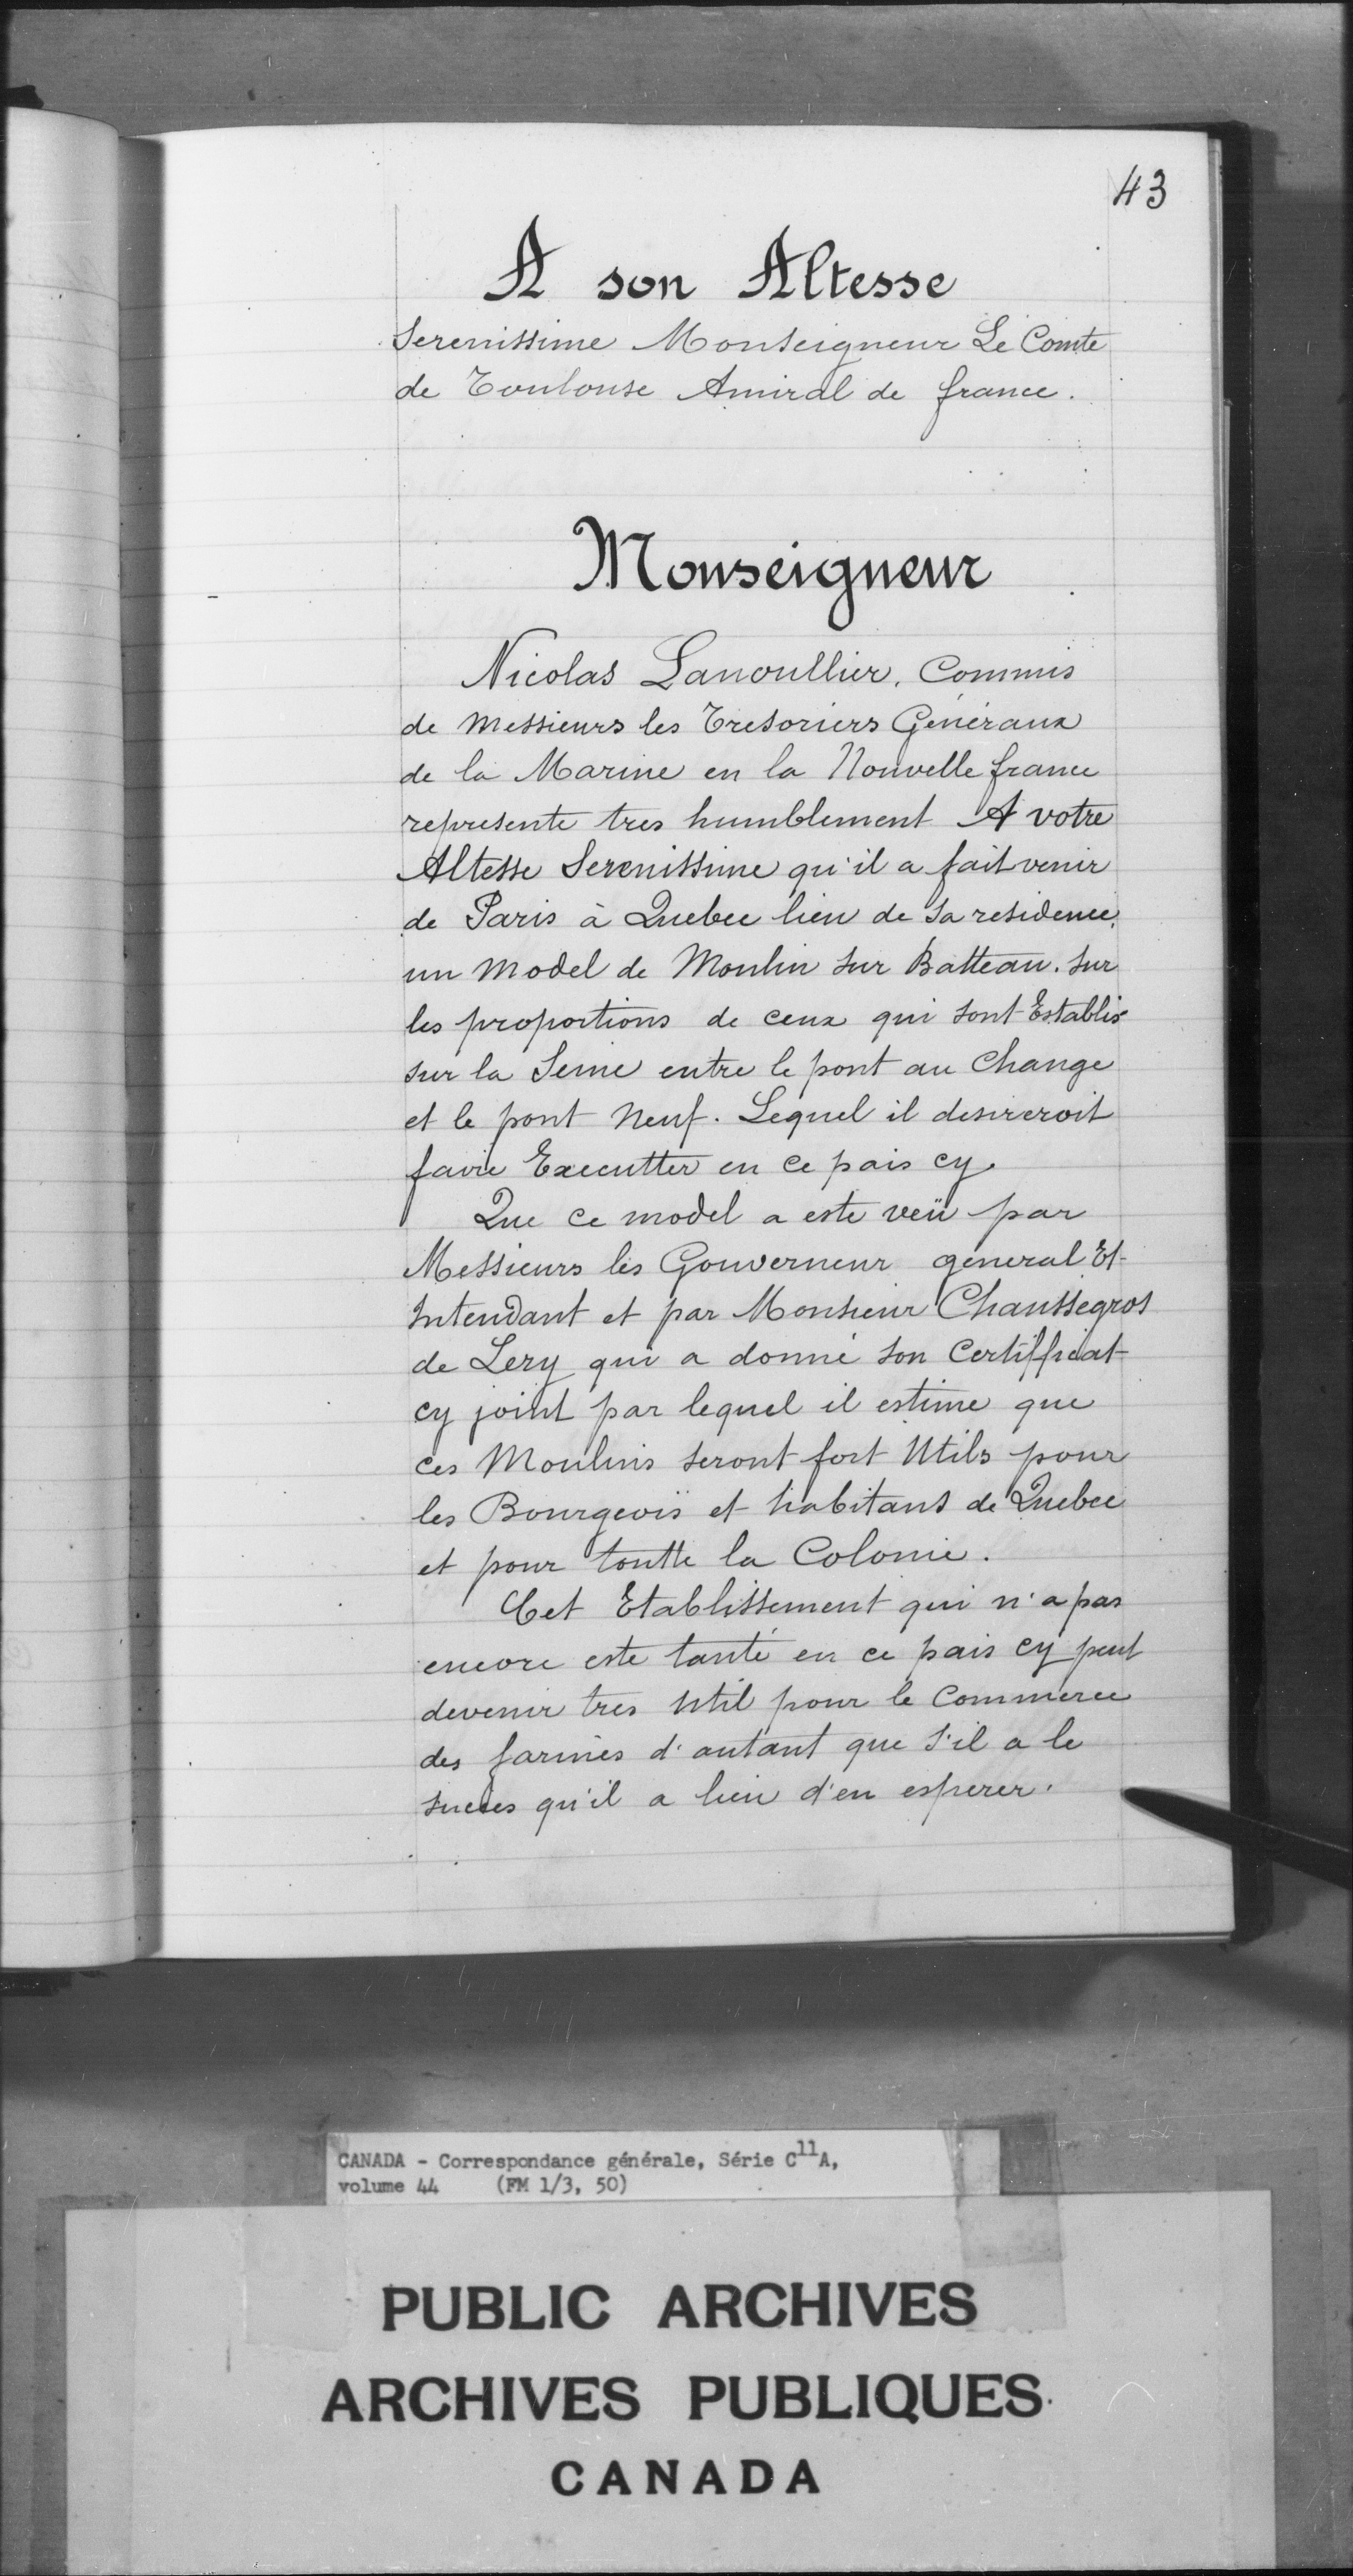 43
A son Altesse
Serenissime Monseigneur Le Comte
de Toulouse Amiral de france.
Monseigneur
Nicolas Lanoullier, Commis
de Messieurs les Tresoriers Généraux
de la Marine en la Nouvelle france
represente tres humblement A votre
Altesse Serenissime qu'il a fait venir
de Paris à Quebec lieu de sa residence,
un model de Moulin sur Batteau. sur
les proportions de ceux qui sont Establis
sur la Seine entre le pont au Change
et le pont Neuf. Lequel il desireroit
faire Executter en ce pais cy.
Que ce model a este veü par
Messieurs les Gouverneur general Et
Intendant et par Monsieur Chaussegros
de Lery qui a donné son Certifficat
cy joint par lequel il estime que
ces Moulins seront fort Utils pour
les Bourgeois et habitans de Quebec
et pour toutte la Colonie.
Cet Etablissement qui n'a pas
encore este tanté en ce pais cy peut
devenir tres Util pour le Commerce
des farines d'autant que s'il a le
succes qu'il a lieu d'en esperer.
CANADA - Correspondance générale, Série C11A,
volume 44 (FM 1/3, 50)
PUBLIC ARCHIVES
ARCHIVES PUBLIQUES
CANADA